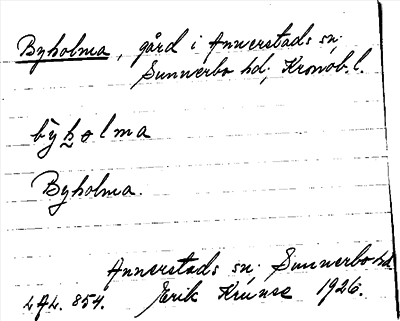 Byholma, gård i Annerstads sn;
Sunnerbo hd; Kronob. l.
bȳholma
Byholma.
Annerstads sn; Sunnerbo hd
LAL. 854. Erik Kruuse 1926.